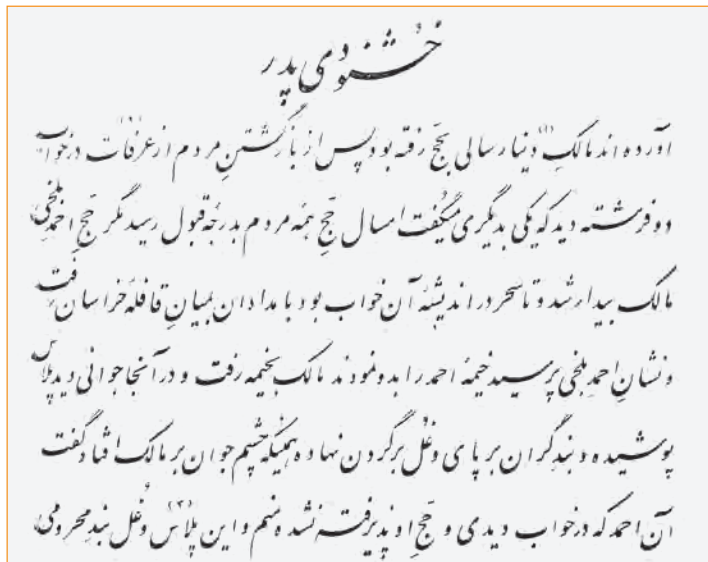 خشنودی پدر
آورده اند مالکِ (۱) دینار سالی بحجّ رفته بود پس از بازگشتنِ مردم از عرفات (۲) در خواب
دو فرشته دید که یکی بدیگری میگفت امسال حجِّ همه مردم بدرجه قبول رسید مگر حجِّ احمدِ بلخی
مالک بیدار شد و تا سحر در اندیشهٔ آن خواب بود بامدادان بمیانِ قافلهٔ خراسان رفت
و نشانِ احمدِ بلخی پرسید خیمهٔ احمد را بدو نمودند مالک بخیمه رفت و در آنجا جوانی دید پلاس
پوشیده و بند گران بر پای و غُل بر گردن نهاده همینکه چشم جوان بر مالک افتاد گفت
آن احمد که در خواب دیدی و حجّ او پذیرفته نشده منم و این پلاس (۳) و غُل بندِ محرومی